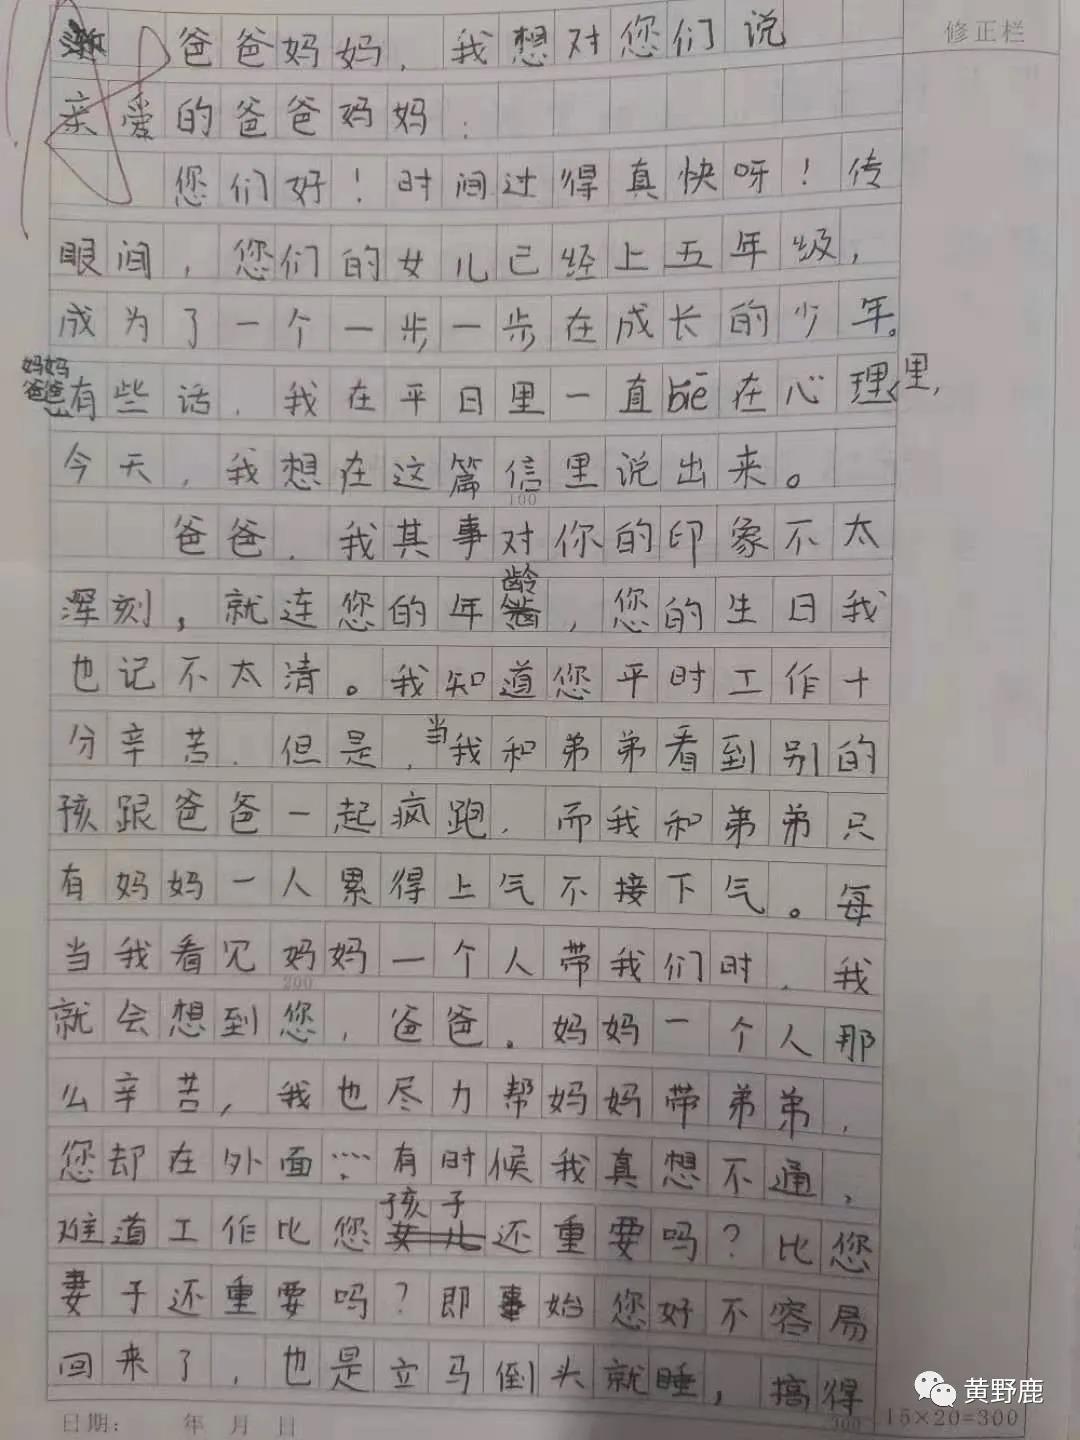 爸爸妈妈，我想对您们说
修正栏
亲爱的爸爸妈妈：
您们好！时间过得真快呀！传
眼间，您们的女儿已经上五年级，
成为了一个一步一步在成长的少年。
妈妈
爸爸
有些话，我在平日里一直biē在心理里，
今天，我想在这篇信里说出来。
100
爸爸，我其事对你的印象不太
深刻，就连您的年龄，您的生日我
也记不太清。我知道您平时工作十
分辛苦，但是，当我和弟弟看到别的
孩跟爸爸一起疯跑，而我和弟弟只
有妈妈一人累得上气不接下气。每
当我看见妈妈一个人带我们时，我
200
就会想到您，爸爸。妈妈一个人那
么辛苦，我也尽力帮妈妈带弟弟，
您却在外面……有时候我真想不通，
难道工作比您孩子还重要吗？比您
妻子还重要吗？即事始您好不容易
回来了，也是立马倒头就睡，搞得
日期： 年 月 日
300
15×20=300
黄野鹿